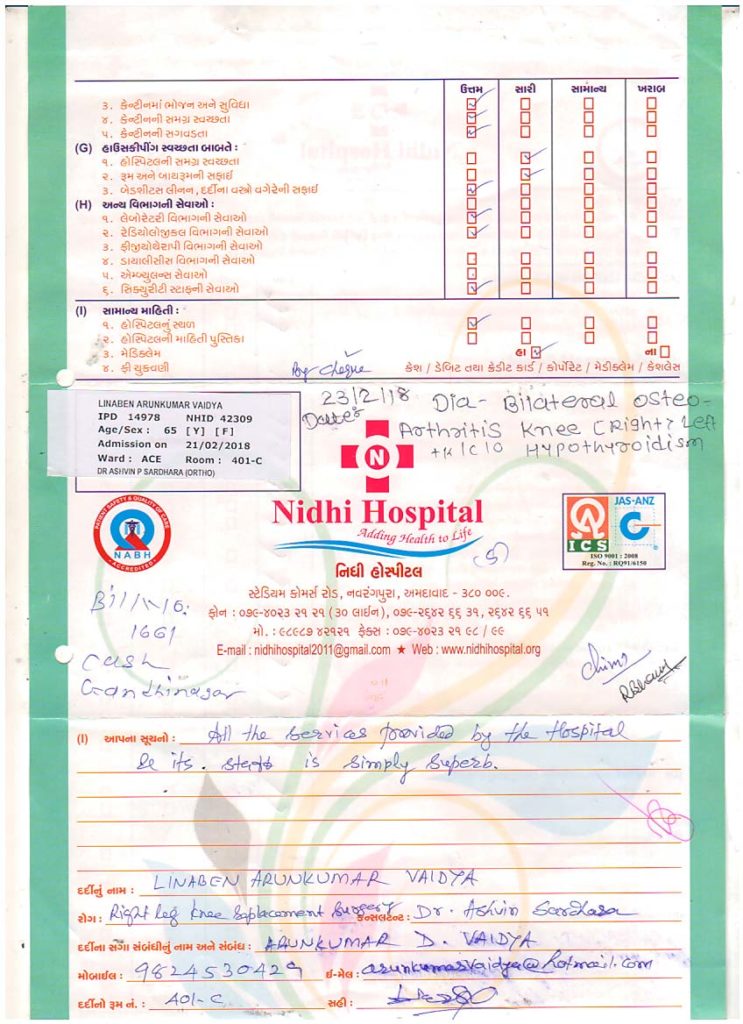 ઉત્તમ સારી સામાન્ય ખરાબ
૩. કેન્ટીનમાં ભોજન અને સુવિધા
૪. કેન્ટીનની સમગ્ર સ્વચ્છતા
૫. કેન્ટીનની સગવડતા
(G) હાઉસકીપીંગ સ્વચ્છતા બાબતે :
૧. હોસ્પિટલની સમગ્ર સ્વચ્છતા
૨. રૂમ અને બાથરૂમની સફાઈ
૩. બેડશીટસ લીનન, દર્દીના વસ્ત્રો વગેરેની સફાઈ
(H) અન્ય વિભાગની સેવાઓ :
૧. લેબોરેટરી વિભાગની સેવાઓ
૨. રેડિયોલોજીકલ વિભાગની સેવાઓ
૩. ફીજીયોથેરાપી વિભાગની સેવાઓ
૪. ડાયાલીસીસ વિભાગની સેવાઓ
૫. એમ્બ્યુલન્સ સેવાઓ
૬. સિક્યુરીટી સ્ટાફની સેવાઓ
(I) સામાન્ય માહિતી :
૧. હોસ્પિટલનું સ્થળ
૨. હોસ્પિટલની માહિતી પુસ્તિકા
૩. મેડિકલેમ હા ના
૪. ફી ચુકવણી By Cheque કેશ / ડેબિટ તથા ક્રેડીટ કાર્ડ / કોર્પોરેટ / મેડીકલેમ / કેશલેસ
LINABEN ARUNKUMAR VAIDYA
IPD 14978 NHID 42309
Age/Sex : 65 [Y] [F]
Admission on 21/02/2018
Ward : ACE Room : 401-C
DR ASHVIN P SARDHARA (ORTHO)
23/2/18
Date:
Dia - Bilateral osteo-
Arthritis Knee (Right > Left
+ K/C/O Hypothyroidism
N
Nidhi Hospital
Adding Health to Life
PATIENT SAFETY & QUALITY OF CARE
NABH
ACCREDITED
JAS-ANZ
ICS
ISO 9001 : 2008
Reg. No. : RQ91/6150
નિધી હોસ્પીટલ
સ્ટેડિયમ કોમર્સ રોડ, નવરંગપુરા, અમદાવાદ - ૩૮૦ ૦૦૯.
ફોન : ૦૭૯-૪૦૨૩ ૨૧ ૨૧ (૩૦ લાઈન), ૦૭૯-૨૬૪૨ ૬૬ ૩૧, ૨૬૪૨ ૬૬ ૫૧
મો. : ૯૮૯૮૭ ૪૨૧૨૧ ફેક્સ : ૦૭૯-૪૦૨૩ ૨૧ ૯૮ / ૯૯
E-mail : nidhihospital2011@gmail.com ★ Web : www.nidhihospital.org
Bill No:
1661
Cash
Gandhinagar
(I) આપના સૂચનો : All the services provided by the Hospital
& its staff is simply superb.
દર્દીનું નામ : LINABEN ARUNKUMAR VAIDYA
રોગ : Right leg knee replacement surgery કન્સલ્ટન્ટ : Dr. Ashvin Sardhara
દર્દીના સગા સંબંધીનું નામ અને સંબંધ : ARUNKUMAR D. VAIDYA
મોબાઈલ : 9824530429 ઈ-મેલ : arunkumarvaidya@hotmail.com
દર્દીનો રૂમ નં. : 401-C સહી :